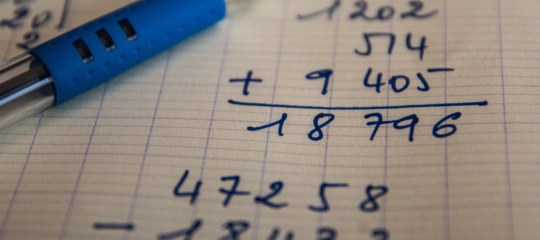 1202
514
+ 9 405
18 796
47258